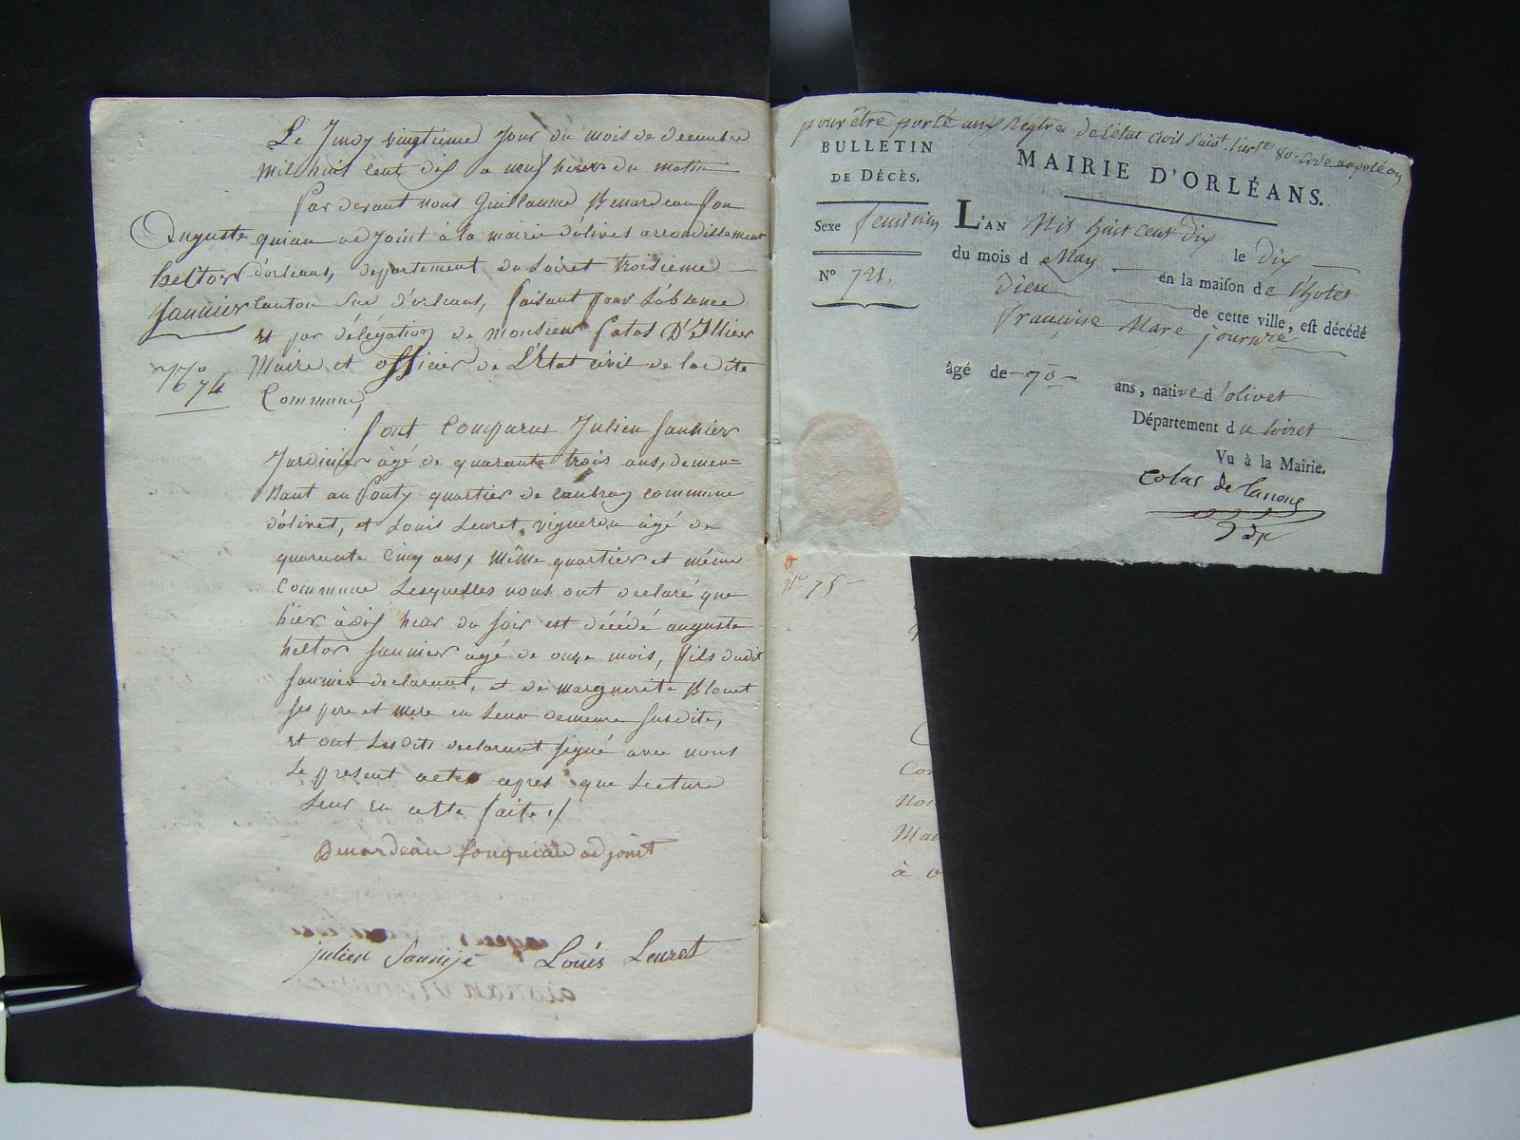 Le Jeudy vingtieme Jour du mois de decembre
mil huit cent dix a neuf heures du matin
Par devant nous Guillaume Benardeau fou
quiau adjoint à la mairie d'olivet arrondissement
d'orleans, departement du Loiret troisieme
Canton Sud d'orleans, faisant pour L'absence
et par délégation de Monsieur Patas D'Illiers
Maire et officier de L'Etat civil de la dite
Commune,
Auguste
hector
Saunier
N° 74
Sont Comparus Julien Saunier
Jardinier âgé de quarante trois ans, demeu=
rant au quartier de commune
d'olivet, et Louis Leuret, vigneron âgé de
quarante cinq ans, même quartier et même
Commune Lesquelles nous ont declaré que
hier à dix heur du soir est décédé auguste
hector Saunier âgé de onze mois, fils dudit
Saunier declarant, et de marguerite Blouet
ses pere et mere en Leur demeure susdite,
et ont Lesdits declarant signé avec nous
Le present acte apres que Lecture
Leur en a été faite ./
Benardeau fouquiau adjoint
julien Sounije Louis Leuret
pour être porté aux Registres de l'état civil Suivt. l'arte. 80 Code napoléon
BULLETIN
DE DÉCÈS.
Sexe feminin
N° 721.
MAIRIE D'ORLÉANS.
L'AN Mil huit cent dix le dix
du mois d e May en la maison de l'hotel
dieu de cette ville, est décédé
françoise Mare
âgé de 70 ans, native d'olivet
Département du Loiret
Vu à la Mairie.
Colas de Lanoue
N° 75
Con
Nou
Mai
à